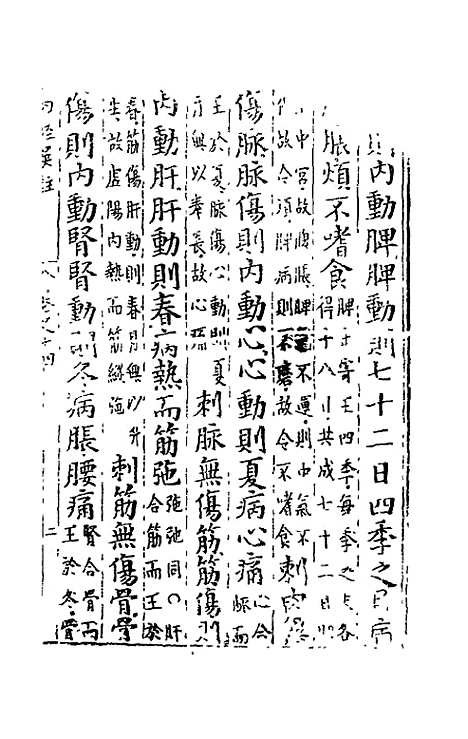 內動脾脾動則七十二日四季之月病
脹煩不嗜食
脾土寄王四季每季之末各
得十八日共成七十二日
中宮故腹脹脾不運則中氣不
故令煩脾病則不磨故令不嗜食
刺肉無
傷脈脈傷則內動心心動則夏病心痛
心合
脈而
王於夏脈傷心動則夏
月無以奉長故心痛
刺脈無傷筋筋傷則
內動肝肝動則春病熱而筋弛
弛弛同○肝
合筋而王於
春筋傷肝動則春月無以升
生故虛陽內熱而筋緩弛
刺筋無傷骨骨
傷則內動腎腎動則冬病脹腰痛
腎合骨而
王於冬骨
內經吳註
卷之十四
二